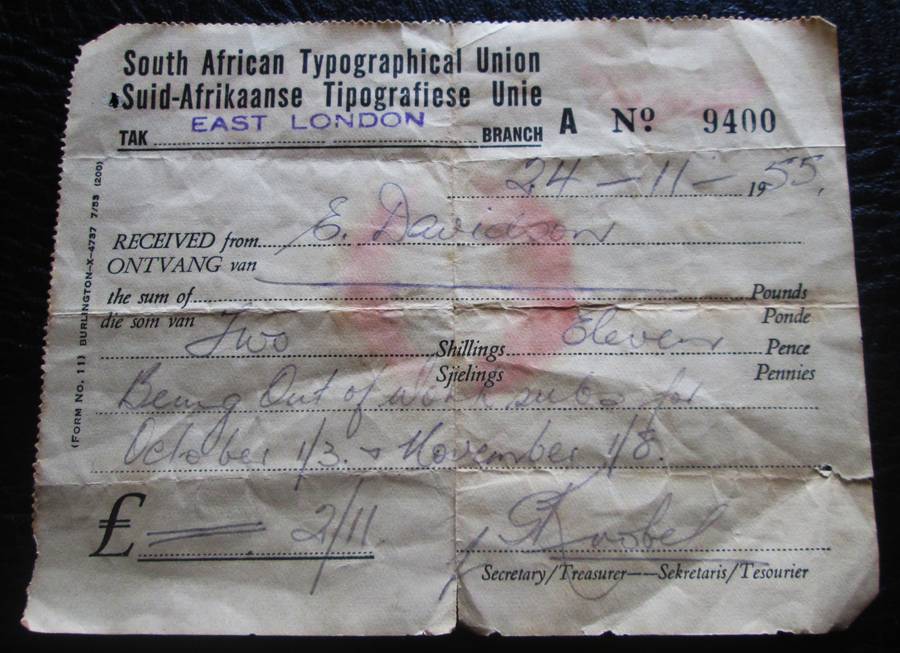 South African Typographical Union
Suid-Afrikaanse Tipografiese Unie
TAK EAST LONDON BRANCH A No 9400
24 - 11 - 1955.
RECEIVED from E. Davidson
ONTVANG van
the sum of Pounds
die som van Ponde
Two Shillings Eleven Pence
Sjielings Pennies
Being Out of Work subs for
October 1/3. & November 1/8.
£ 2/11.
Secretary/Treasurer——Sekretaris/Tesourier
(FORM NO. 11) BURLINGTON—X—4737 7/53 (200)